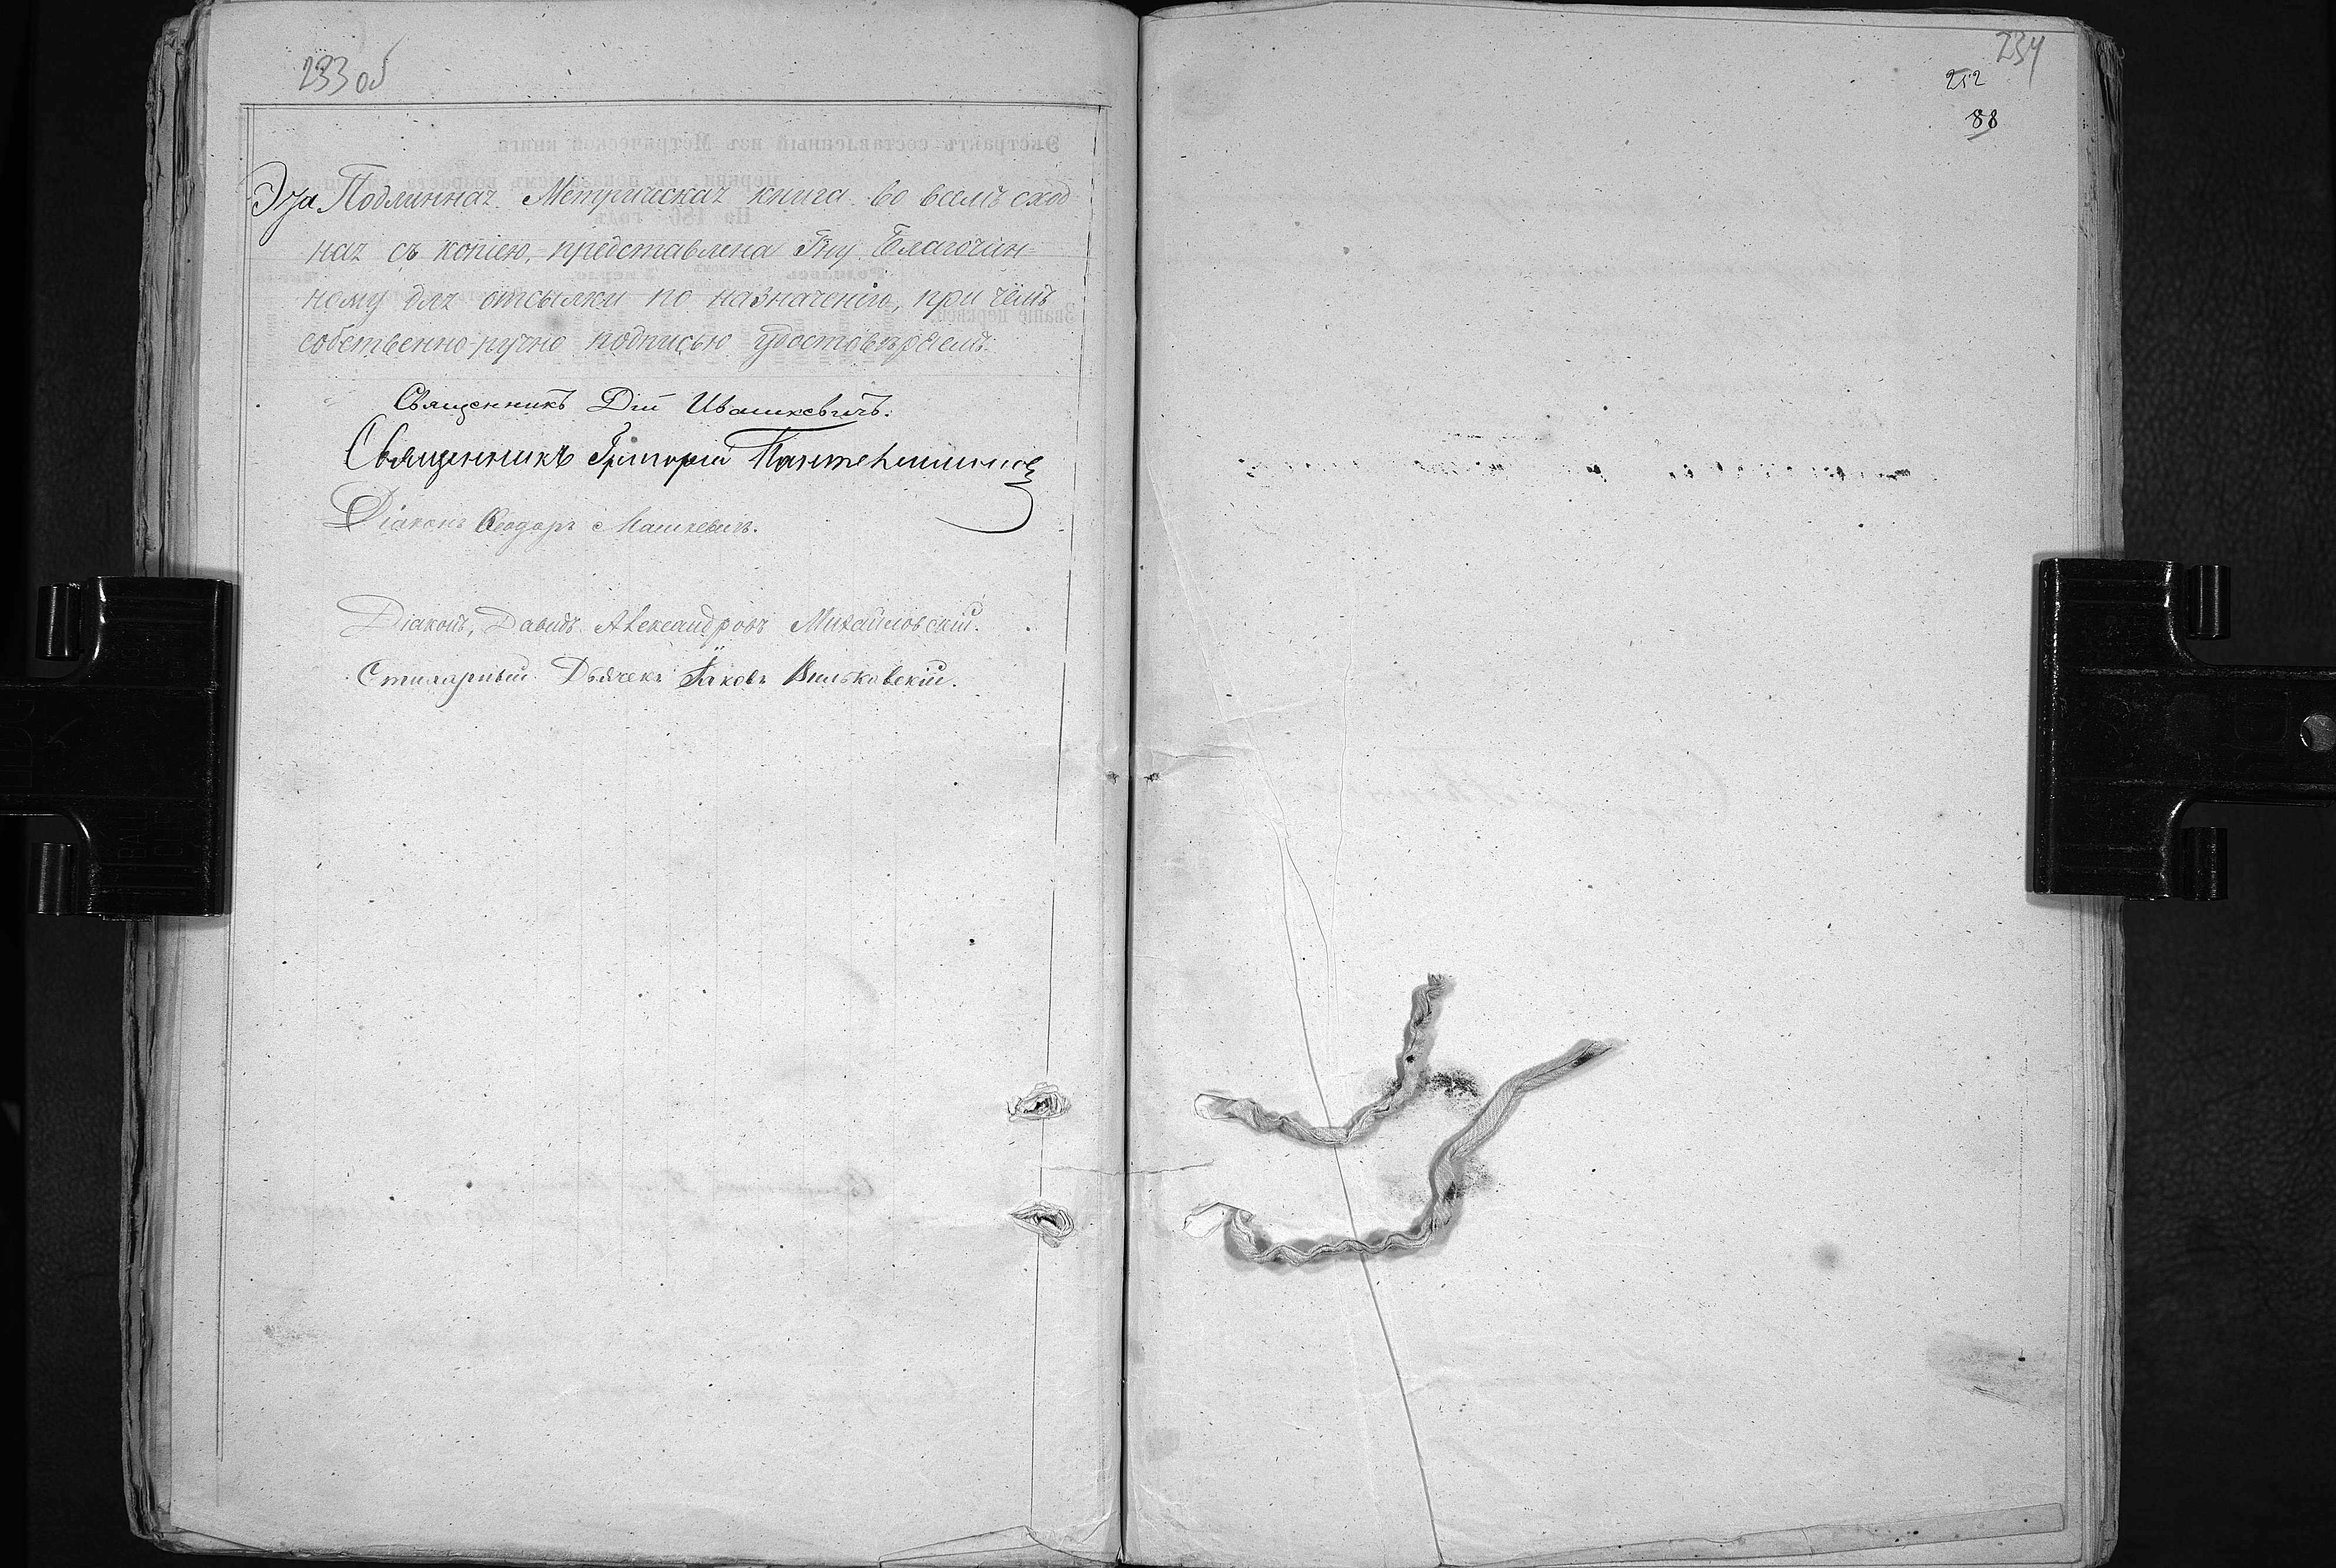 233 об
Эта Подлинная Метрическая книга во всемъ сход-
ная съ копіею, представлена Гну Благочин-
ному для отсылки по назначенію, при чёмъ
собственно-ручно подписью удостовѣряемъ:
Священникъ Дій Ивашкевичъ.
Священникъ Григорій
Діаконъ Ѳеодоръ Машкевичъ.
Діаконъ, Давидъ Александровъ Михайловскій.
Стихарный Дьячекъ Іаковъ Вильковскій.
234
252
88